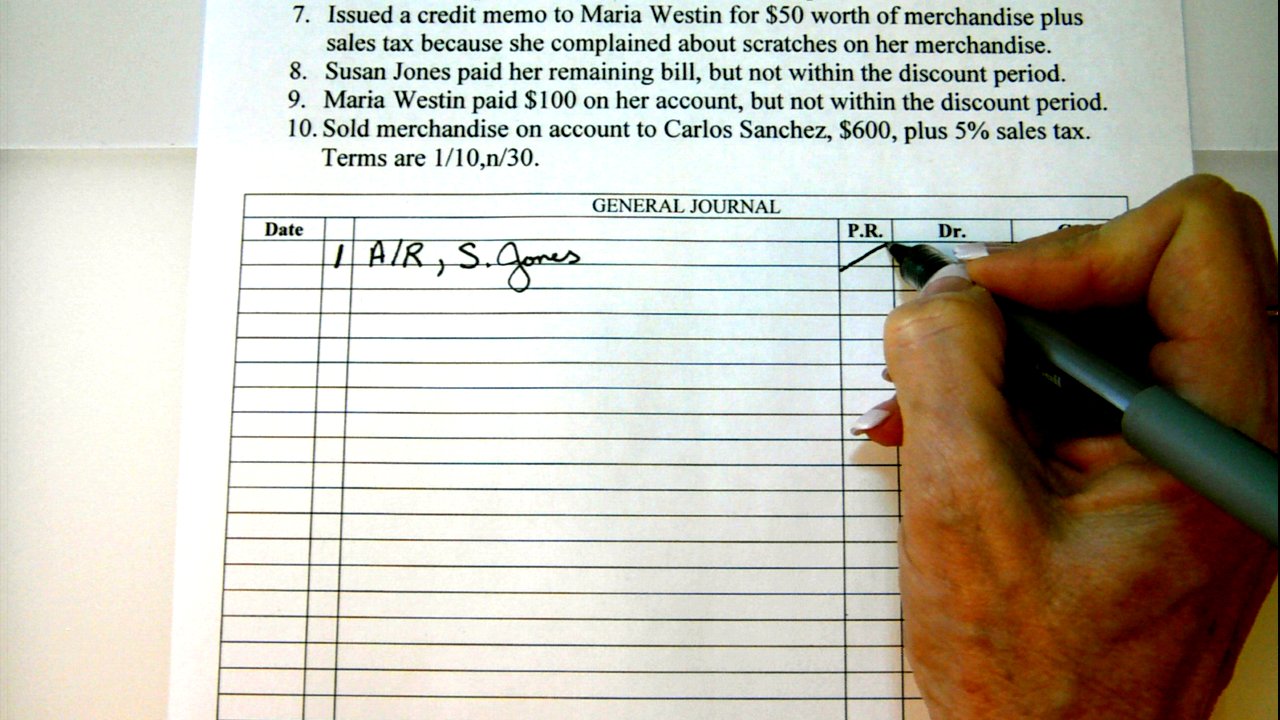 7. Issued a credit memo to Maria Westin for $50 worth of merchandise plus
sales tax because she complained about scratches on her merchandise.
8. Susan Jones paid her remaining bill, but not within the discount period.
9. Maria Westin paid $100 on her account, but not within the discount period.
10. Sold merchandise on account to Carlos Sanchez, $600, plus 5% sales tax.
Terms are 1/10,n/30.
GENERAL JOURNAL
Date P.R. Dr.
1 A/R, S. Jones